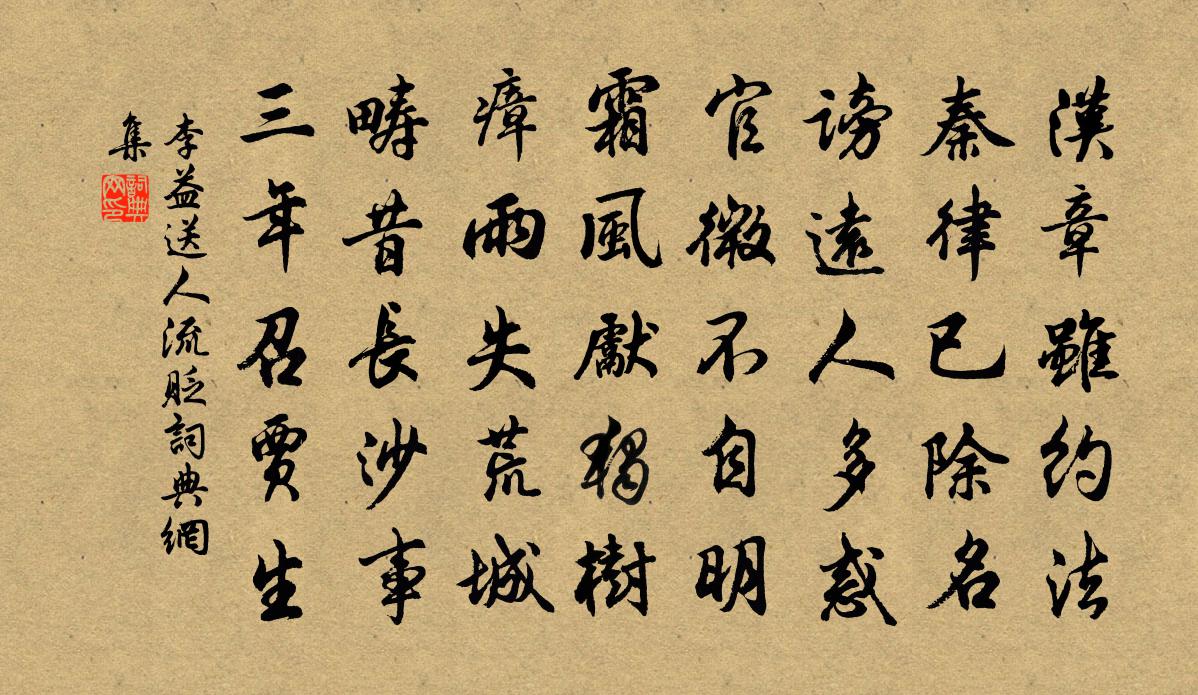 漢章雖約法
秦律已除名
謗遠人多惑
官微不自明
霜風獻獨樹
瘴雨失荒城
疇昔長沙事
三年召賈生
李益送人流貶詞典網
集
詞典
网印